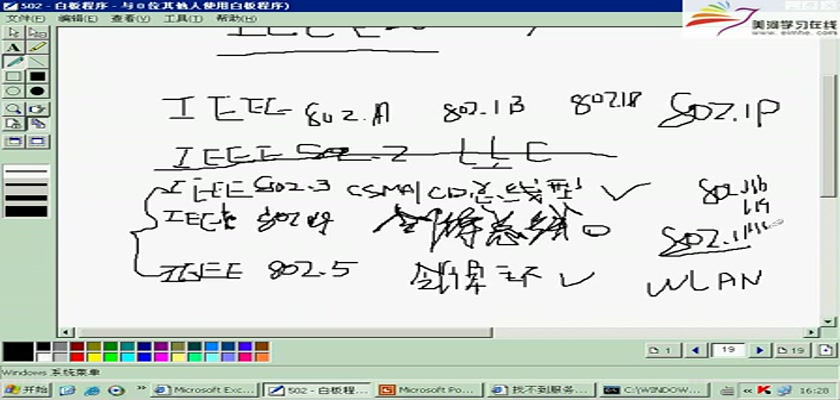 502 - 白板程序 - 与 0 位其他人使用白板程序)
文件(F) 编辑(E) 查看(V) 工具(T) 帮助(H)
美河学习在线
www.eimhe.com
IEEE 802.1A 802.1B 802.1P
IEEE 802.2 LLC
IEEE 802.3 CSMA/CD总线型
IEEE 802.4 令牌总线
802.11
IEEE 802.5 令牌环 WLAN
1 19 19
Windows 系统菜单
开始 Microsoft Exc... 502 - 白板程... Microsoft Po... 找不到服务... C:\WINDOW... 16:28